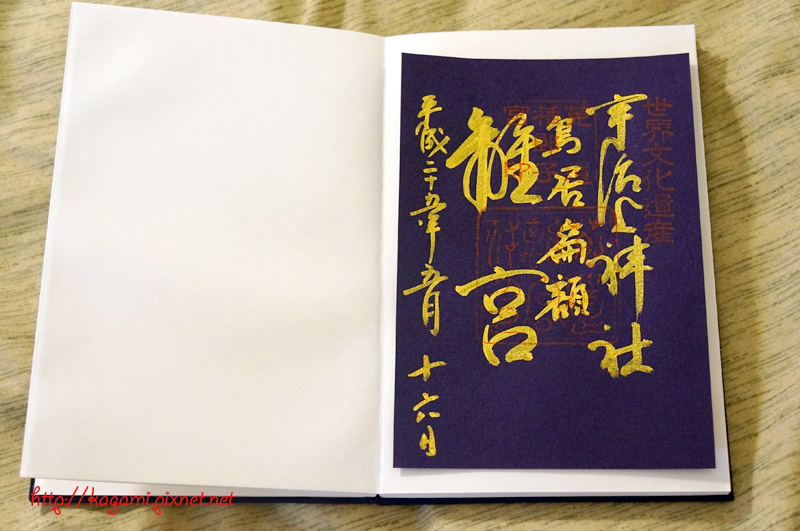 世界文化遺産
宇治上神社
鳥居扁額
離宮
平成二十五年五月十六日
http://kagami.pixnet.net